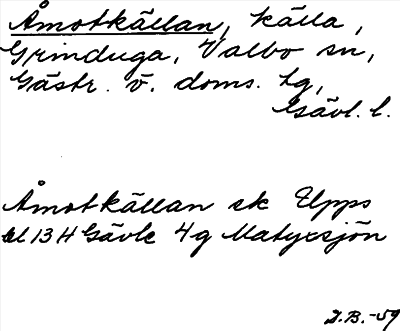 Åmotkällan, källa,
Grinduga, Valbo sn,
Gästr. v. doms. tg,
Gävl. l.
Åmotkällan ek Upps
bl 13 H Gävle 4g Matyxsjön
J.B. -59